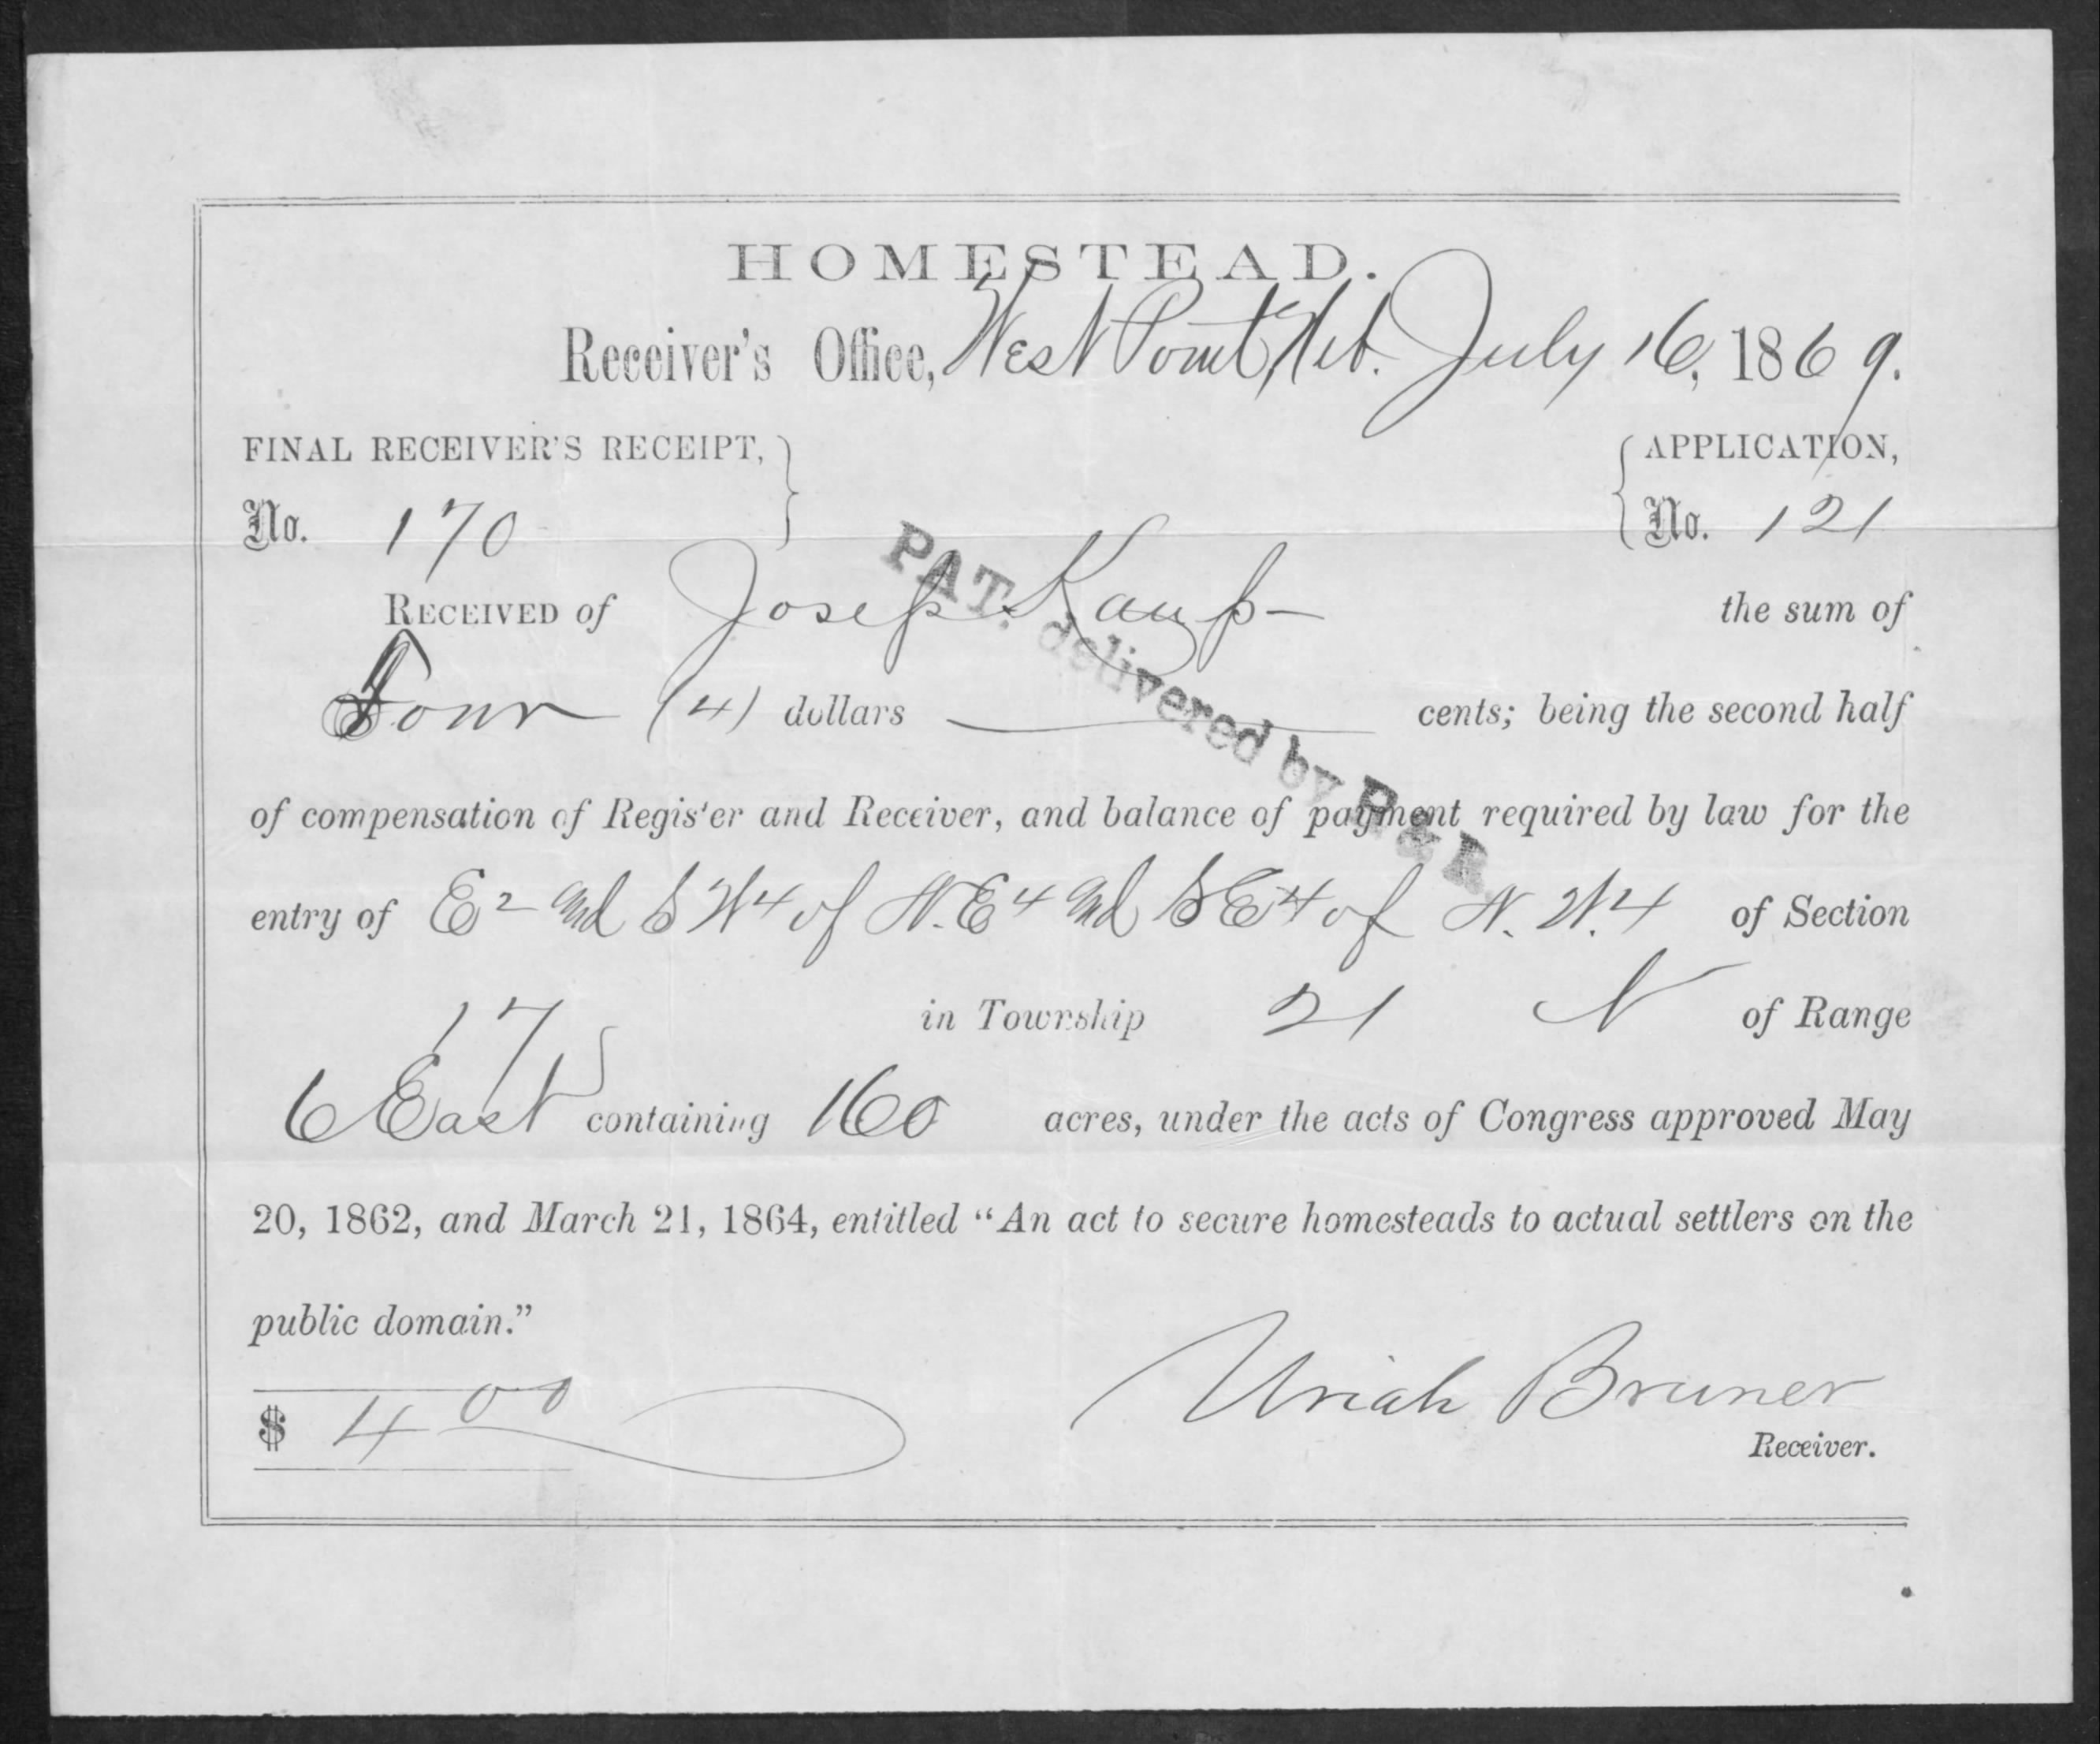 HOMESTEAD.
Receiver's Office, West Point, Neb. July 16, 1869.
FINAL RECEIVER'S RECEIPT, APPLICATION,
No. 170 No. 121
RECEIVED of Josep Kaup the sum of
Four (4) dollars cents; being the second half
of compensation of Register and Receiver, and balance of payment required by law for the
entry of E 2 and S W 4 of N. E 4 and S E 4 of N. W. 4 of Section
17 in Township 21 N of Range
6 East containing 160 acres, under the acts of Congress approved May
20, 1862, and March 21, 1864, entitled “An act to secure homesteads to actual settlers on the
public domain.”
$ 4 00 Uriah Bruner
Receiver.
PAT. delivered by R & R.